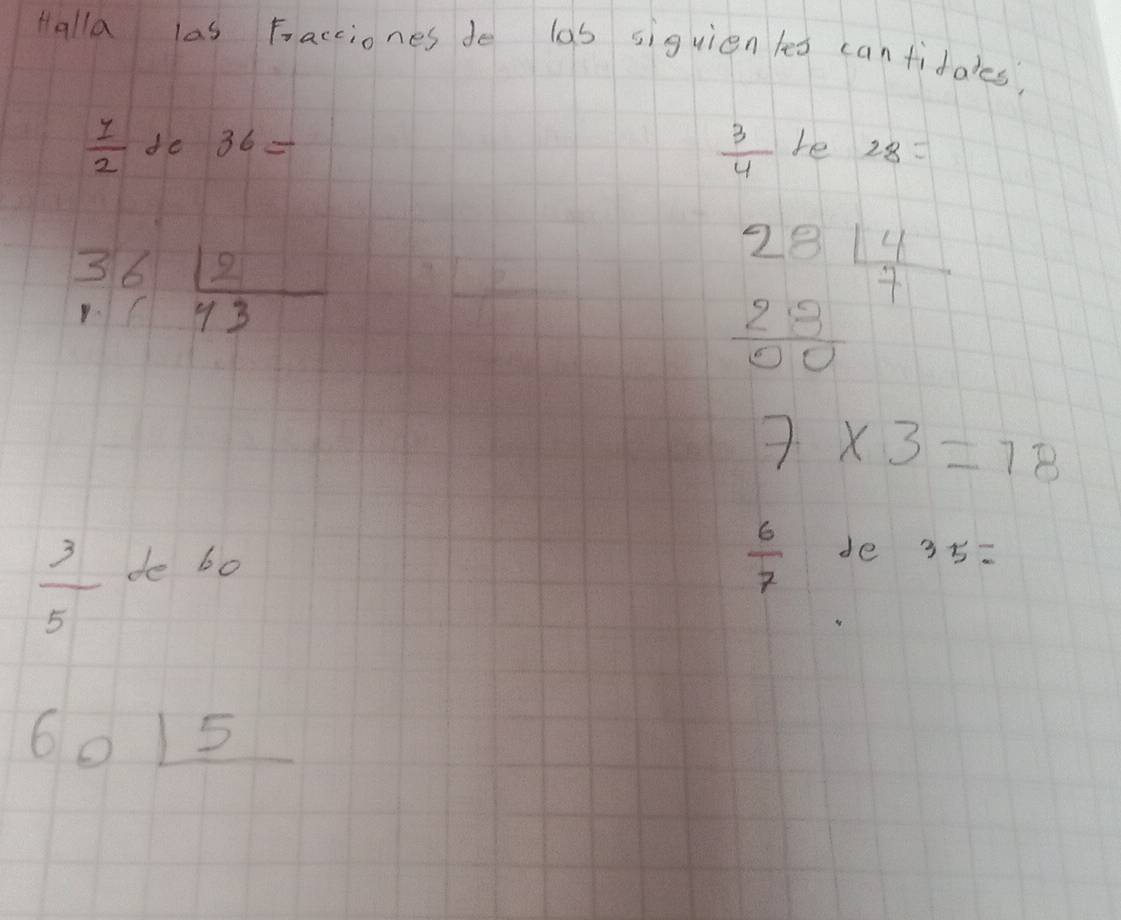 Halla las Fracciones de las siguientes cantidades,
1/2 de 36 =
3/4 de 28 =
36 | 2
13
28 | 4
7
28
00
7 x 3 = 18
3/5 de 60
6/7 de 35 =
60 | 5